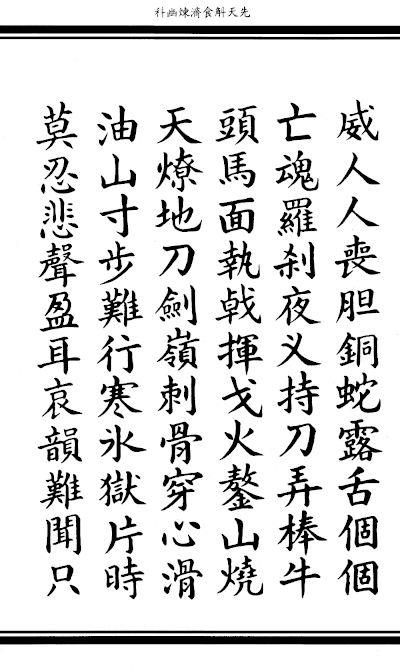 先天斛食濟煉幽科
威人人喪胆銅蛇露舌個個
亡魂羅刹夜叉持刀弄棒牛
頭馬面執戟揮戈火鏊山燒
天燎地刀劍嶺刺骨穿心滑
油山寸步難行寒氷獄片時
莫忍悲聲盈耳哀韻難聞只